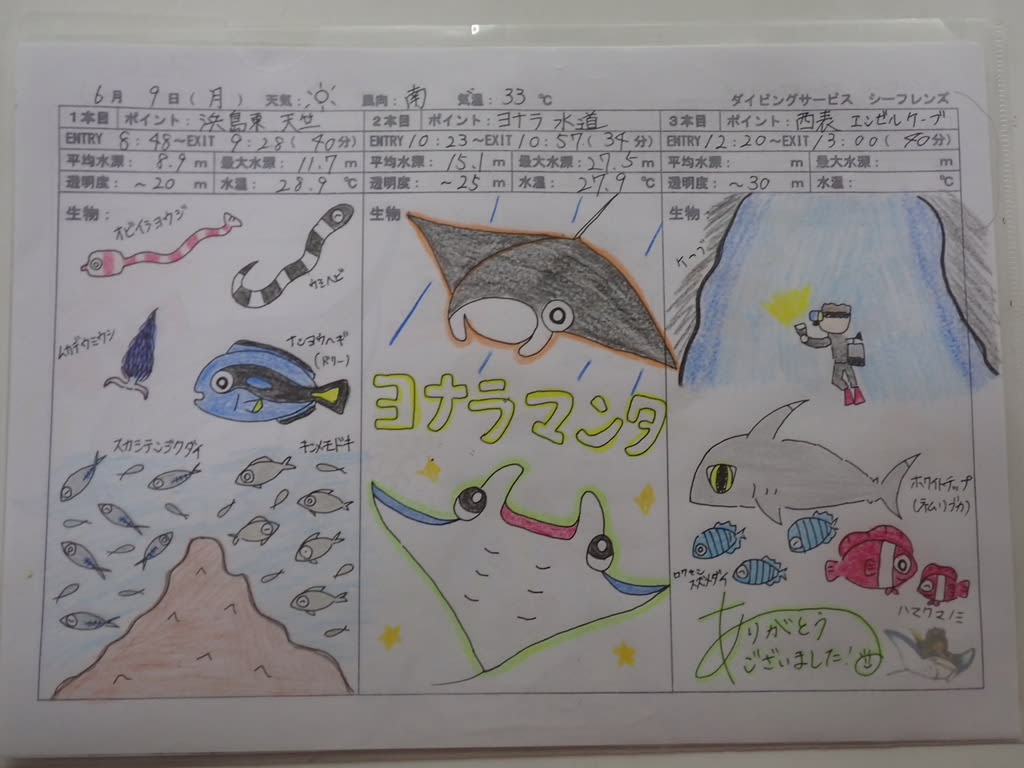 6月 9日(月) 天気: 風向:南 気温:33℃ ダイビングサービス シーフレンズ
1本目 ポイント: 浜島東 天竺
ENTRY 8:48~EXIT 9:28(40分)
平均水深: 8.9 m 最大水深: 11.7 m
透明度: ~20 m 水温: 28.9 ℃
生物:
オビイシヨウジ
ウミヘビ
ムカデウミウシ
ナンヨウハギ
(ドリー)
スカシテンジクダイ
キンメモドキ
2本目 ポイント: ヨナラ水道
ENTRY 10:23~EXIT 10:57(34分)
平均水深: 15.1 m 最大水深: 27.5 m
透明度: ~25 m 水温: 27.9 ℃
生物
ヨナラマンタ
3本目 ポイント: 西表 エンゼルケーブ
ENTRY 12:20~EXIT 13:00(40分)
平均水深: m 最大水深: m
透明度: ~30 m 水温: ℃
生物:
ケーブ
ホワイトチップ
(ネムリブカ)
ロクセン
スズメダイ
ハマクマノミ
ありがとう
ございました!